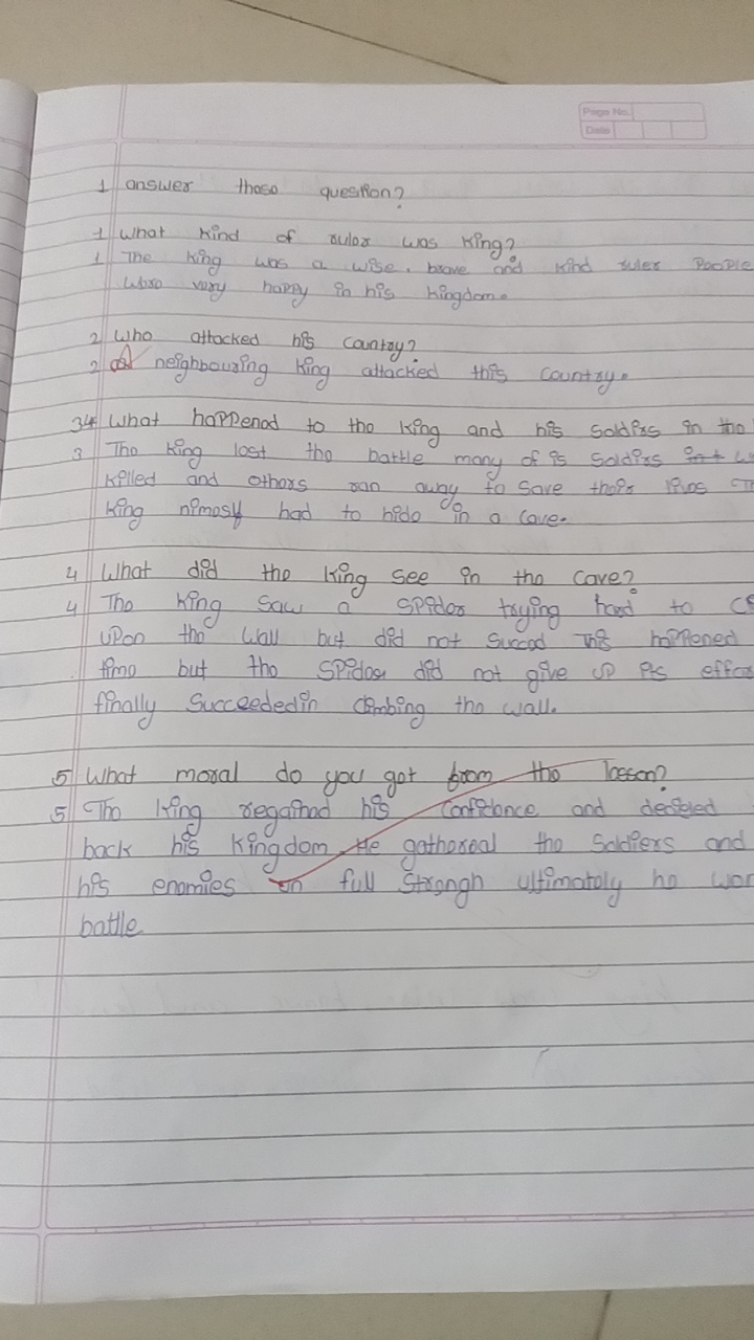 Page No.
Date
1 answer those question?
1 What kind of ruler was king?
1 The king was a wise, brave and kind ruler People
were very happy in his kingdom.
2 Who attacked his country?
2 neighbouring king attacked this country.
34 What happened to the king and his soldirs in the
3 The king lost the battle many of is soldirs
killed and others ran away to save their lives
king had to hide in a cave.
4 What did the king see in the cave?
4 The king saw a spider trying hard to
upon the wall but did not succed This happened
time but the spider did not give up its
finally succeededin climbing the wall.
5 What moral do you get from the lesson?
5 The king regained his confidence and
back his kingdom He gathered the soldiers and
his enemies in full strengh ultimately he
battle